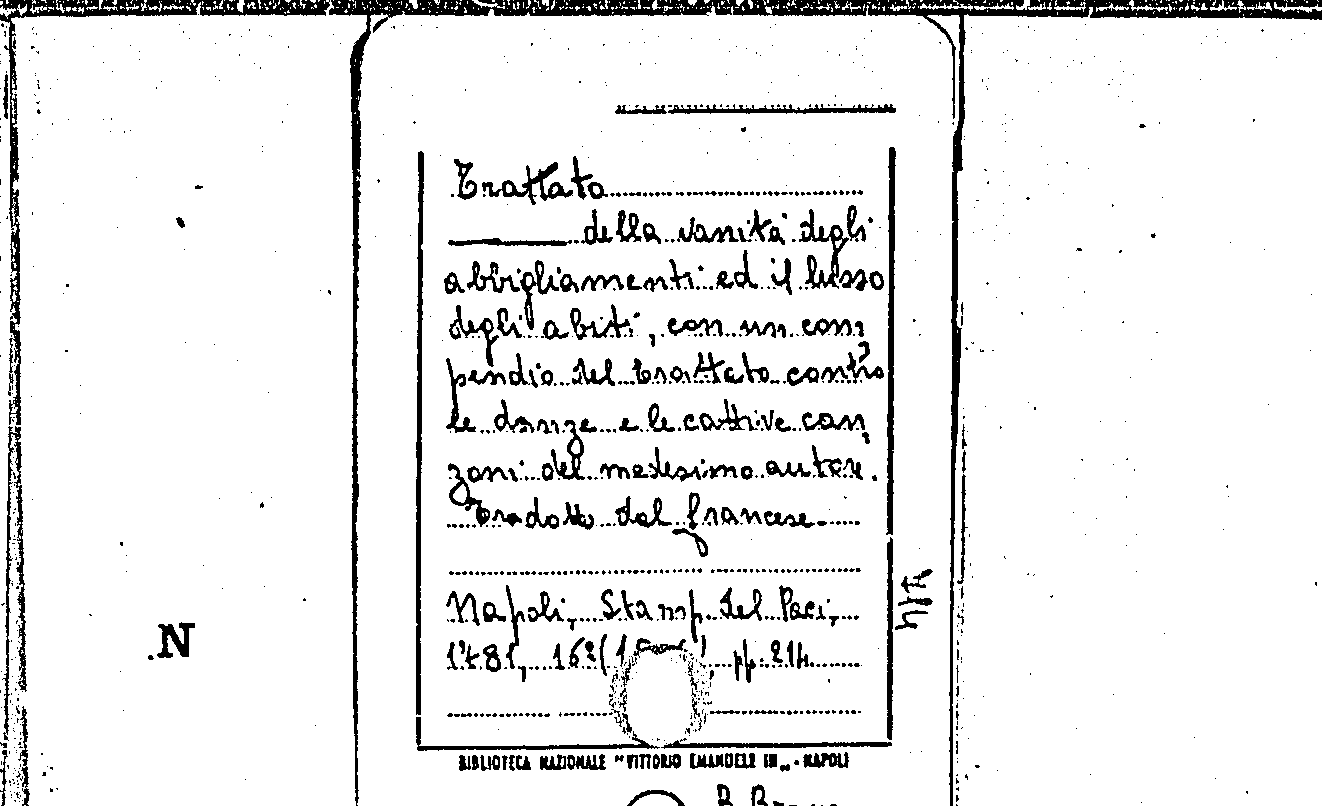 Trattato
della vanità degli
abbigliamenti ed il lusso
degli abiti, con un com=
pendio del trattato contro
le danze e le cattive can=
zoni del medesimo autore.
Tradotto dal francese.
Napoli, Stamp. del Paci,
1781, 16°( pp. 214
N
BIBLIOTECA NAZIONALE "VITTORIO EMANUELE III„ - NAPOLI